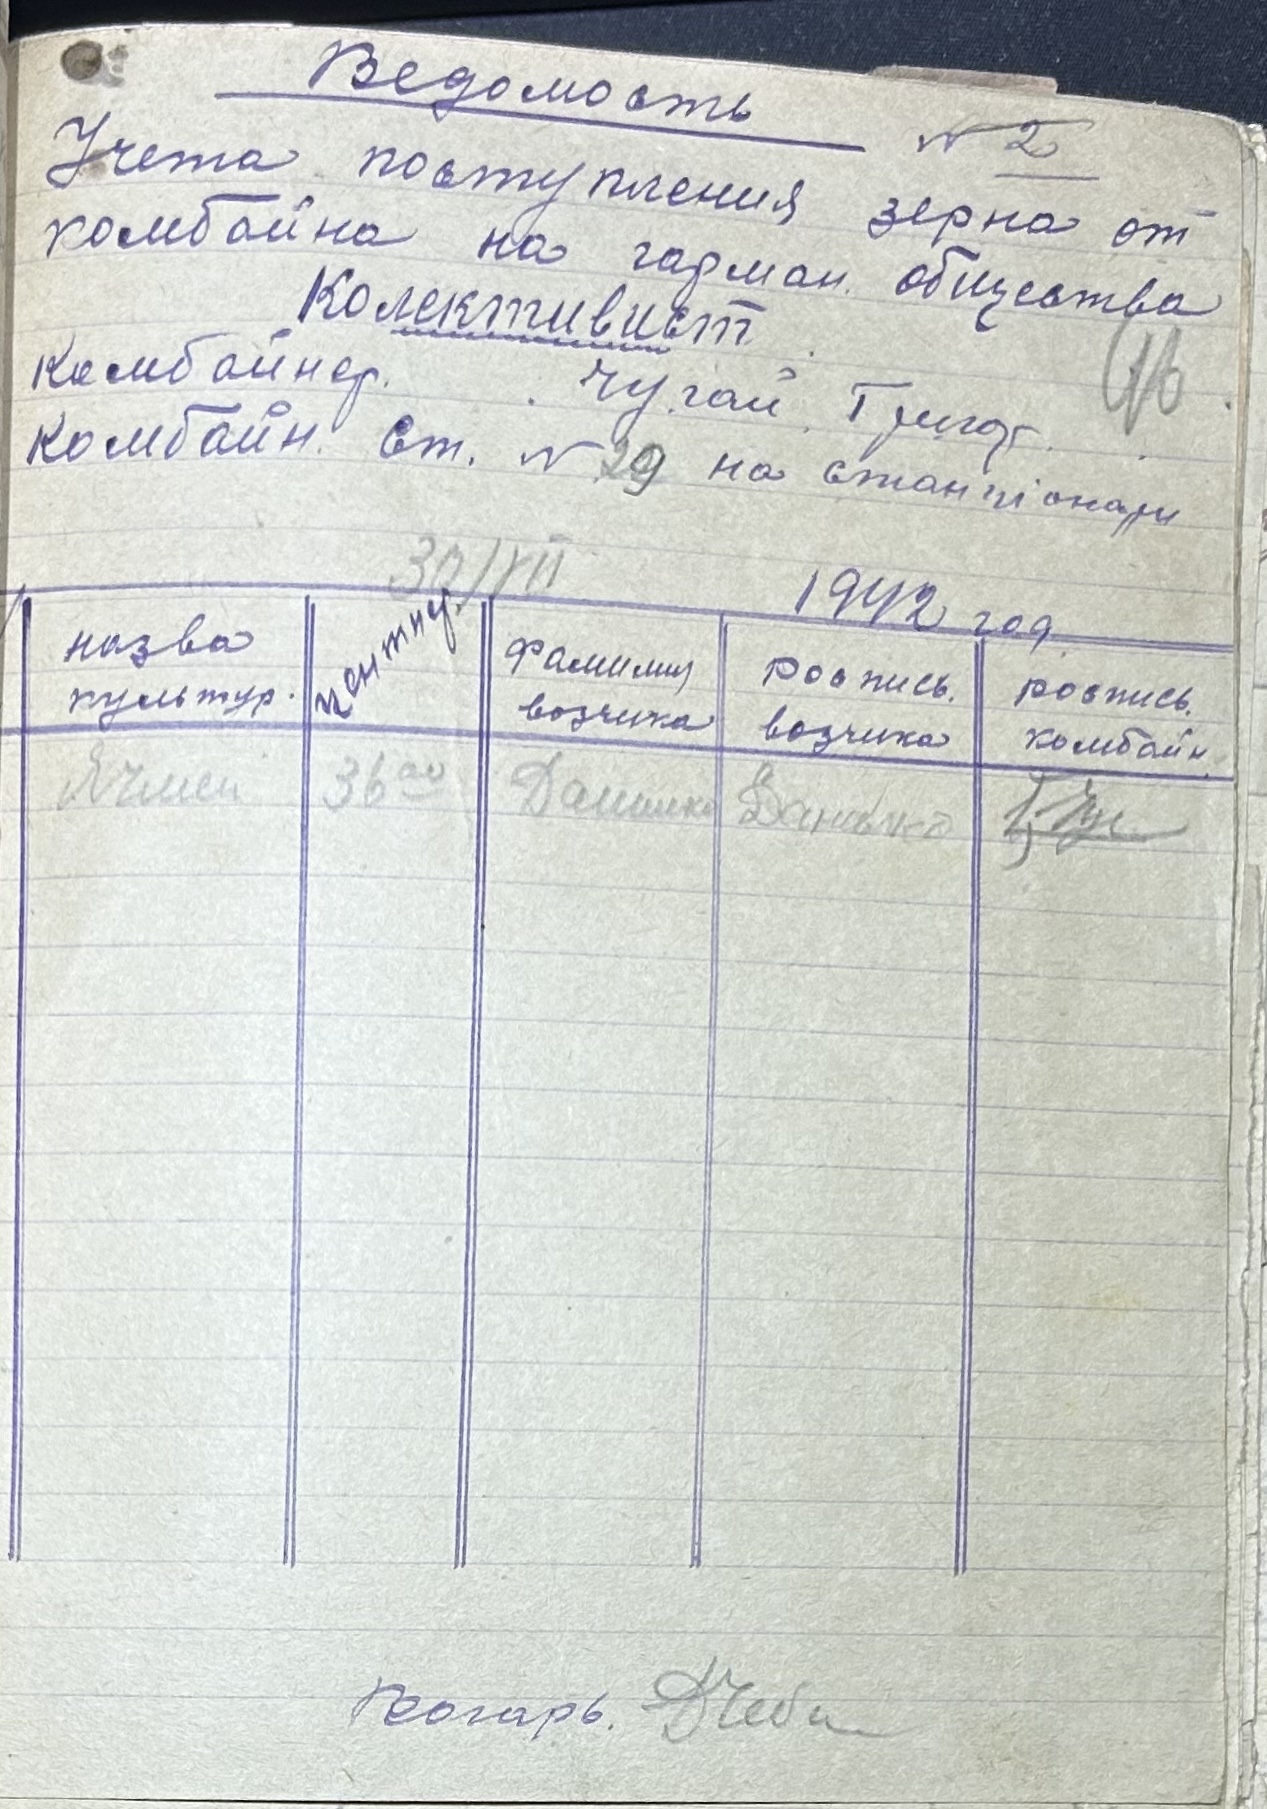 Ведомость
№ 2
Учета поступления зерна от
комбайна на гарман. общества
Колективист
Комбайнер. Чугай Григор.
Комбайн. Ст. № 29 на станціонари
30/VII
1942 год
назва культур.
центнер.
фамилия возчика
роспись. возчика
роспись. комбайн.
Ячмень 36 00 Данилко Данько